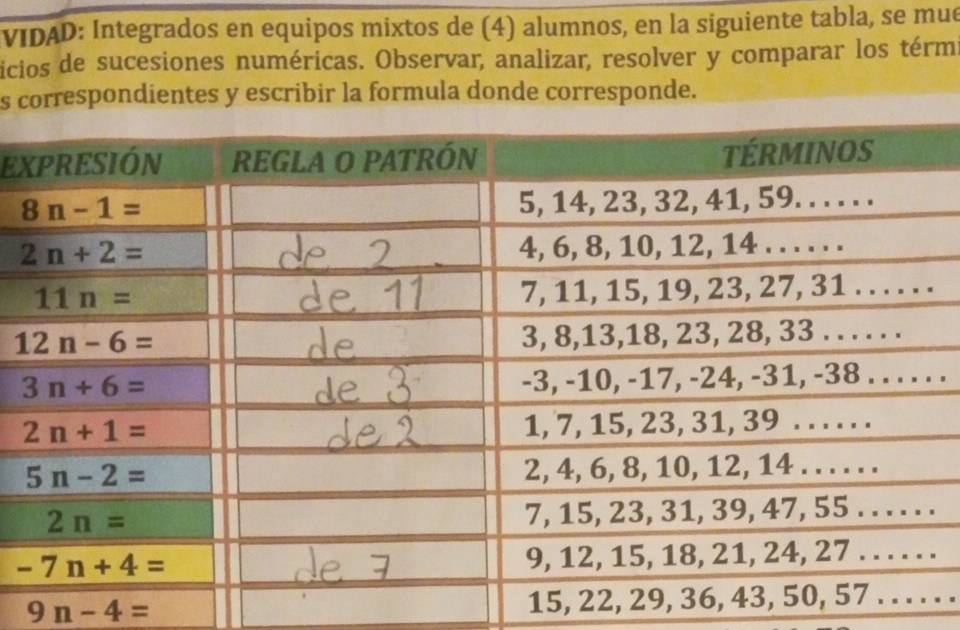 VIDAD: Integrados en equipos mixtos de (4) alumnos, en la siguiente tabla, se mue
icios de sucesiones numéricas. Observar, analizar, resolver y comparar los térmi
s correspondientes y escribir la formula donde corresponde.
EXPRESIÓN REGLA O PATRÓN TÉRMINOS
8 n - 1 = 5, 14, 23, 32, 41, 59......
2 n + 2 = de 2 4, 6, 8, 10, 12, 14 ......
11 n = de 11 7, 11, 15, 19, 23, 27, 31 ......
12 n - 6 = de 3, 8,13,18, 23, 28, 33 ......
3 n + 6 = de 3 -3, -10, -17, -24, -31, -38 ......
2 n + 1 = de 2 1, 7, 15, 23, 31, 39 ......
5 n - 2 = 2, 4, 6, 8, 10, 12, 14 ......
2 n = 7, 15, 23, 31, 39, 47, 55 ......
- 7 n + 4 = de 7 9, 12, 15, 18, 21, 24, 27 ......
9 n - 4 = 15, 22, 29, 36, 43, 50, 57 ......